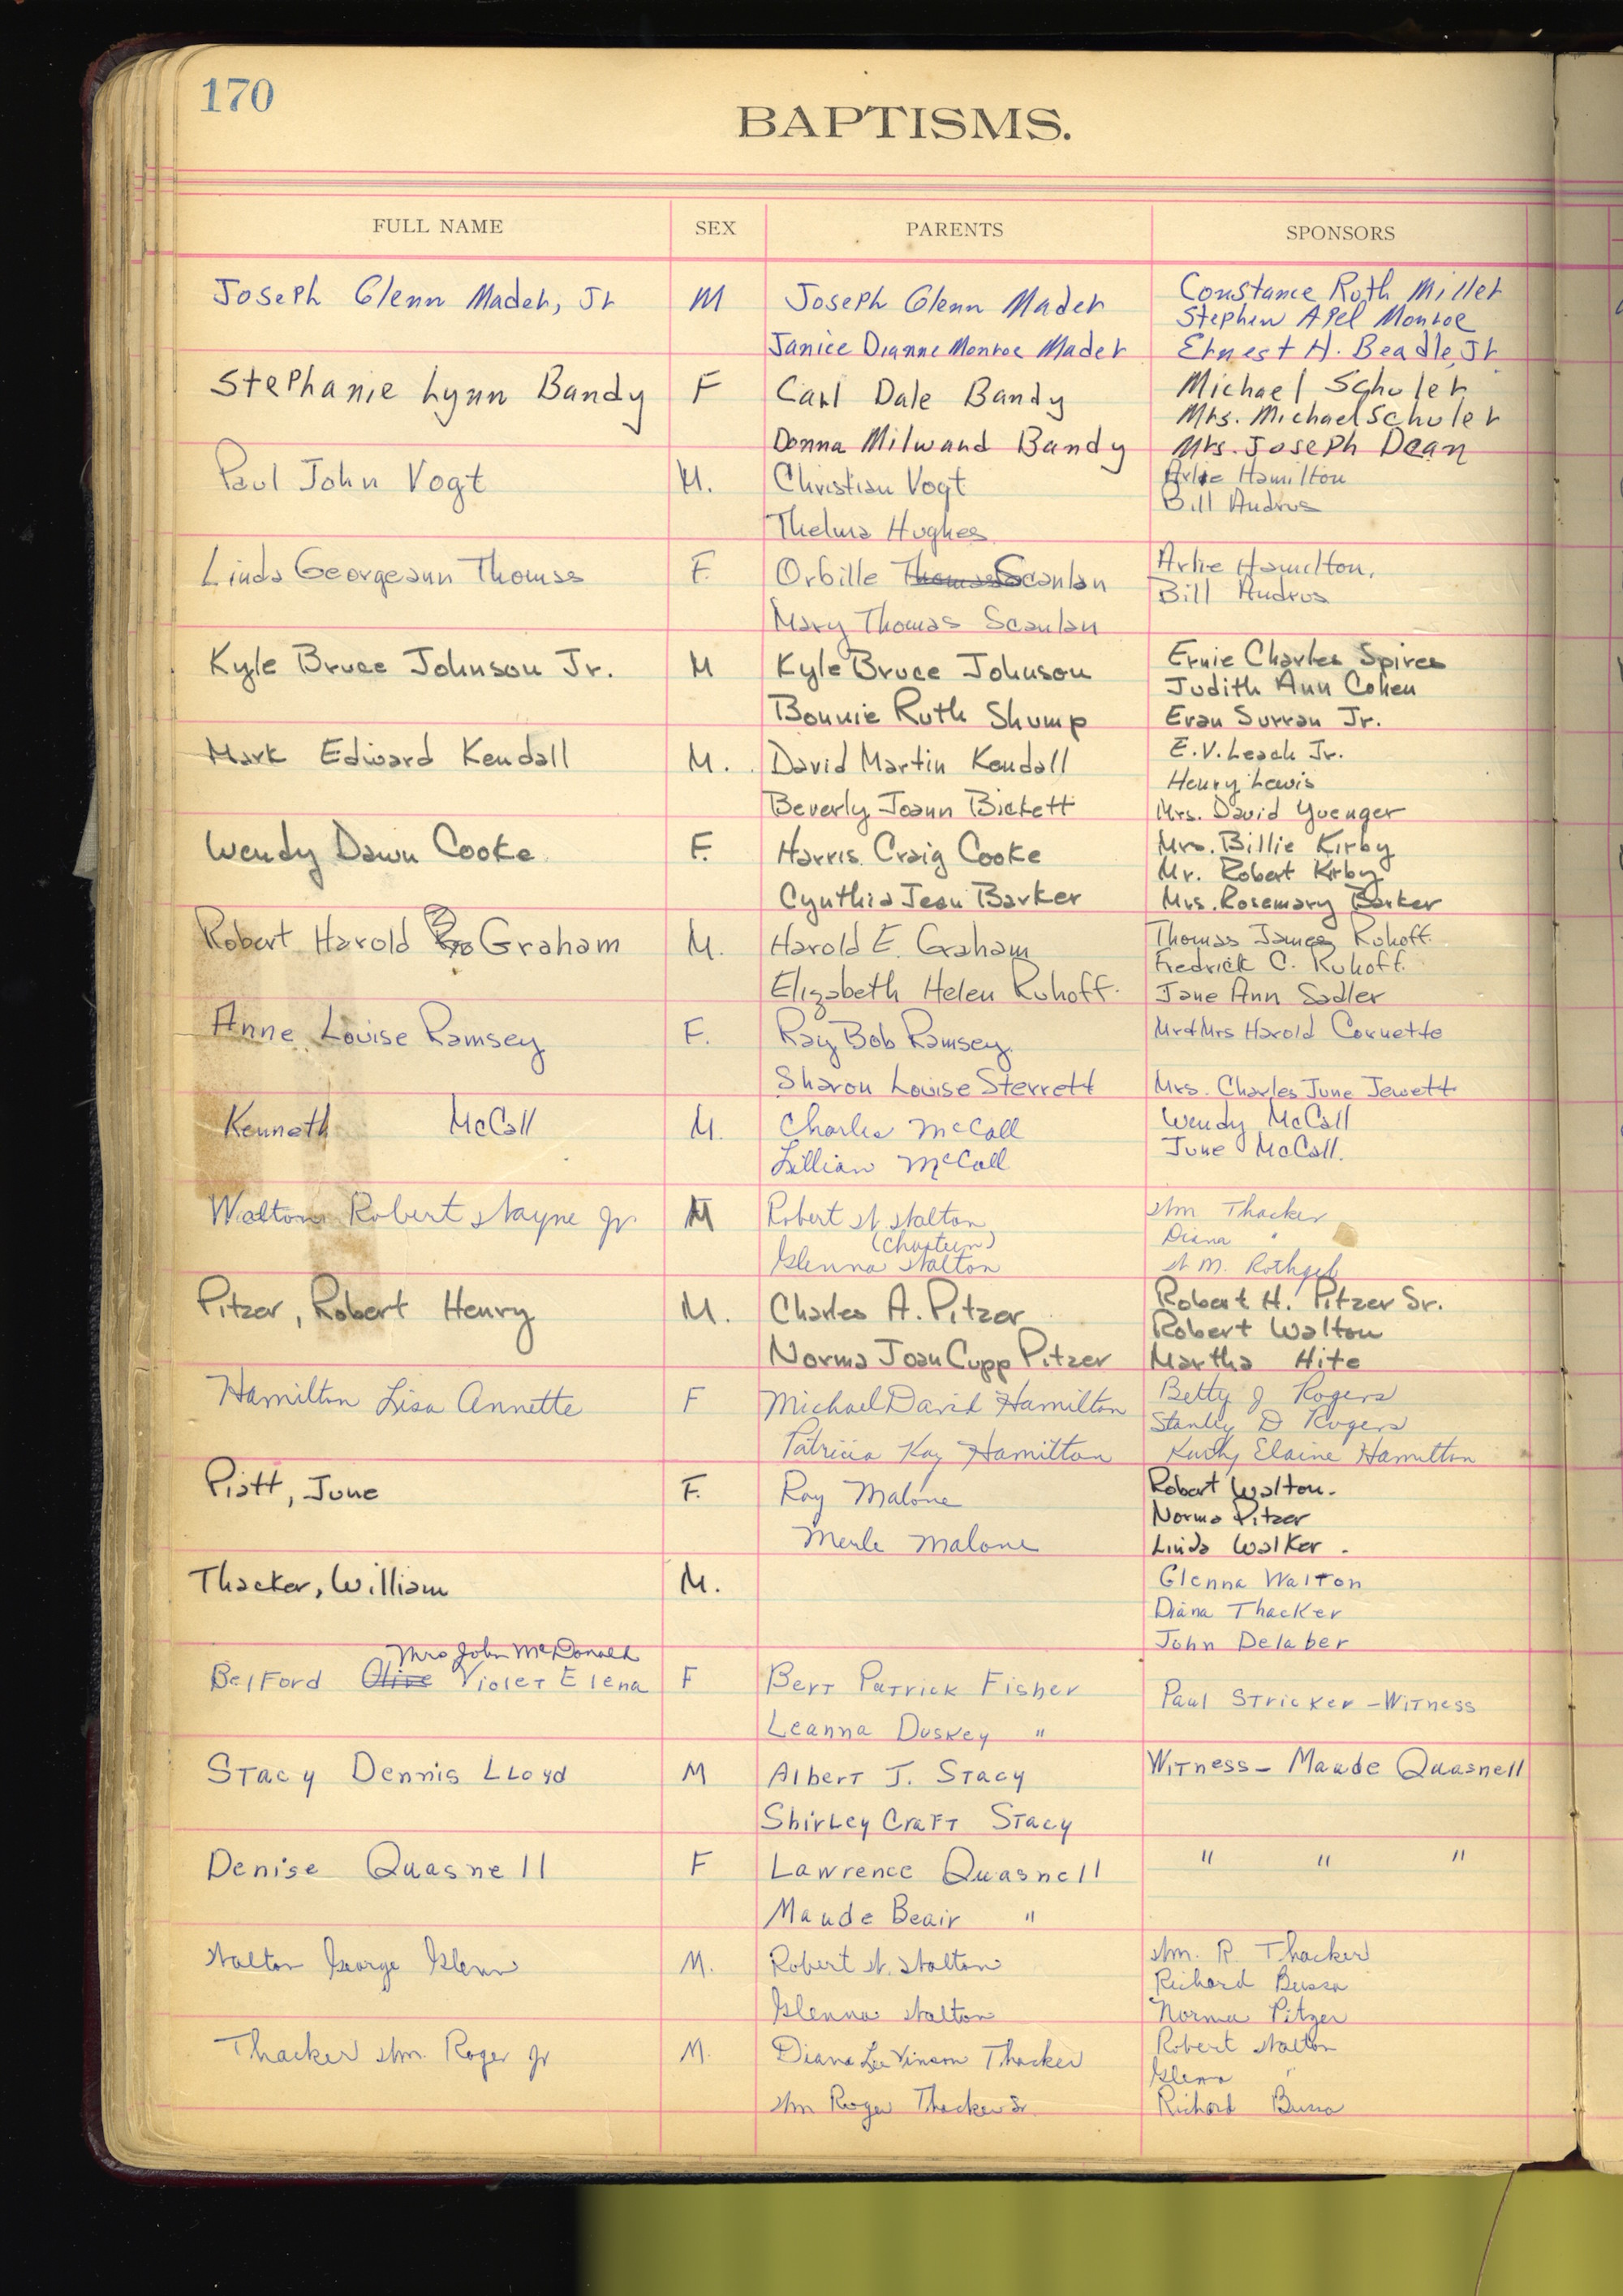 170
BAPTISMS.
FULL NAME SEX PARENTS SPONSORS
Joseph Glenn Mader, Jr M Joseph Glenn Mader Constance Ruth Miller
Stephen Apel Monroe
Janice Dianne Monroe Mader Ernest H. Beadle, Jr.
Stephanie Lynn Bandy F Carl Dale Bandy Michael Schuler
Mrs. Michael Schuler
Donna Milward Bandy Mrs. Joseph Dean
Paul John Vogt M. Christian Vogt Arlie Hamilton
Bill Andrus
Thelma Hughes
Linda Georgeann Thomas F. Orbille Thomas Scanlan Arlie Hamilton,
Bill Andrus
Mary Thomas Scanlan
Kyle Bruce Johnson Jr. M Kyle Bruce Johnson Ernie Charles Spires
Judith Ann Cohen
Bonnie Ruth Shump Evan Surran Jr.
Mark Edward Kendall M. David Martin Kendall E.V. Leach Jr.
Henry Lewis
Beverly Joann Bickett Mrs. David Yuenger
Wendy Dawn Cooke F. Harris Craig Cooke Mrs. Billie Kirby
Mr. Robert Kirby
Cynthia Jean Barker Mrs. Rosemary Barker
Robert Harold Graham M. Harold E. Graham Thomas James Ruhoff.
Fredrick C. Ruhoff.
Elizabeth Helen Ruhoff. Jane Ann Sadler
Anne Louise Ramsey F. Ray Bob Ramsey Mr & Mrs Harold Cornette
Sharon Louise Sterrett Mrs. Charles June Jewett
Kenneth McCall M. Charles McCall Wendy McCall
Lillian McCall June McCall.
Walton Robert Wayne Jr. M Robert W. Walton Wm Thacker
Diana "
Glenna Walton W. M. Rothgeb
Pitzer, Robert Henry M. Charles A. Pitzer Robert H. Pitzer Sr.
Robert Walton
Norma Joan Cupp Pitzer Martha Hite
Hamilton Lisa Annette F Michael David Hamilton Betty J Rogers
Stanley D Rogers
Patricia Kay Hamilton Kathy Elaine Hamilton
Piatt, June F. Ray Malone Robert Walton.
Norma Pitzer
Merle Malone Linda Walker.
Thacker, William M. Glenna Walton
Diana Thacker
John Delaber
Mrs John McDonald
Belford Olive Violet Elena F Bert Patrick Fisher Paul Stricker - Witness
Leanna Duskey "
Stacy Dennis Lloyd M Albert J. Stacy Witness - Maude Quasnell
Shirley Craft Stacy
Denise Quasnell F Lawrence Quasnell " " "
Maude Beair "
Walton George Glenn M. Robert W. Walton Wm. R Thacker
Richard Bussa
Glenna Walton Norma Pitzer
Thacker Wm. Roger Jr M. Diana Lee Vinson Thacker Robert Walton
Glena "
Wm Roger Thacker Sr. Richard Bussa